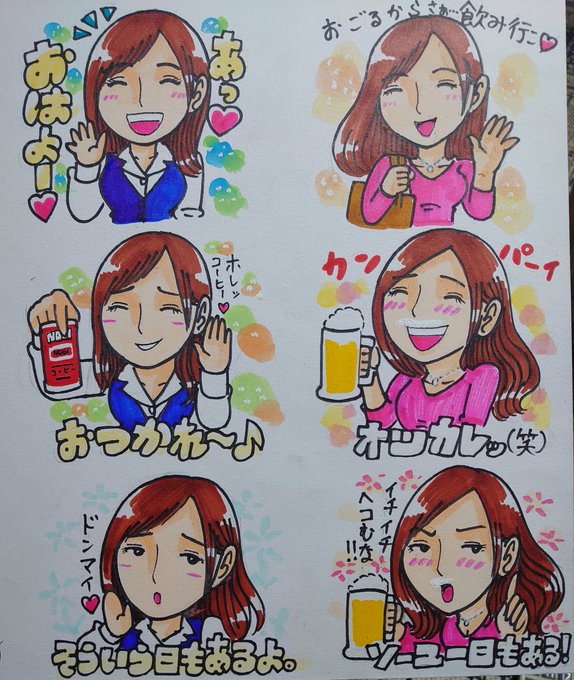 あっ♥
おはよー♥
おごるからさぁ…飲み行こ♥
ホレッ
コーヒー♥
NO.1
NOGI
コーヒー
おつかれ〜♪
カンパーイ
オツカレッ(笑)
ドンマイ♥
そういう日もあるよ。
イチイチ
ヘコむな
!!
ソーユー日もある!